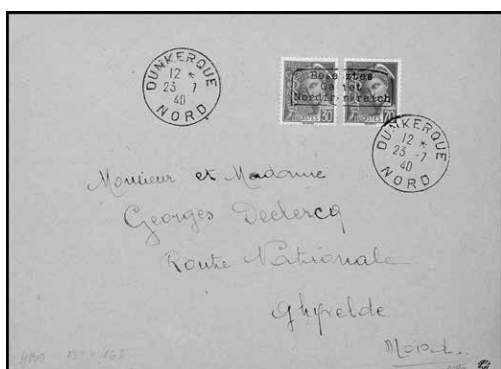 DUNKERQUE
12 *
23 - 7
40
NORD
Besetztes
Gebiet
Nordfrankreich
POSTES 30
POSTES 70
DUNKERQUE
12 *
23 - 7
40
NORD
Monsieur et Madame
Georges Declercq
Route Nationale
Ghyvelde